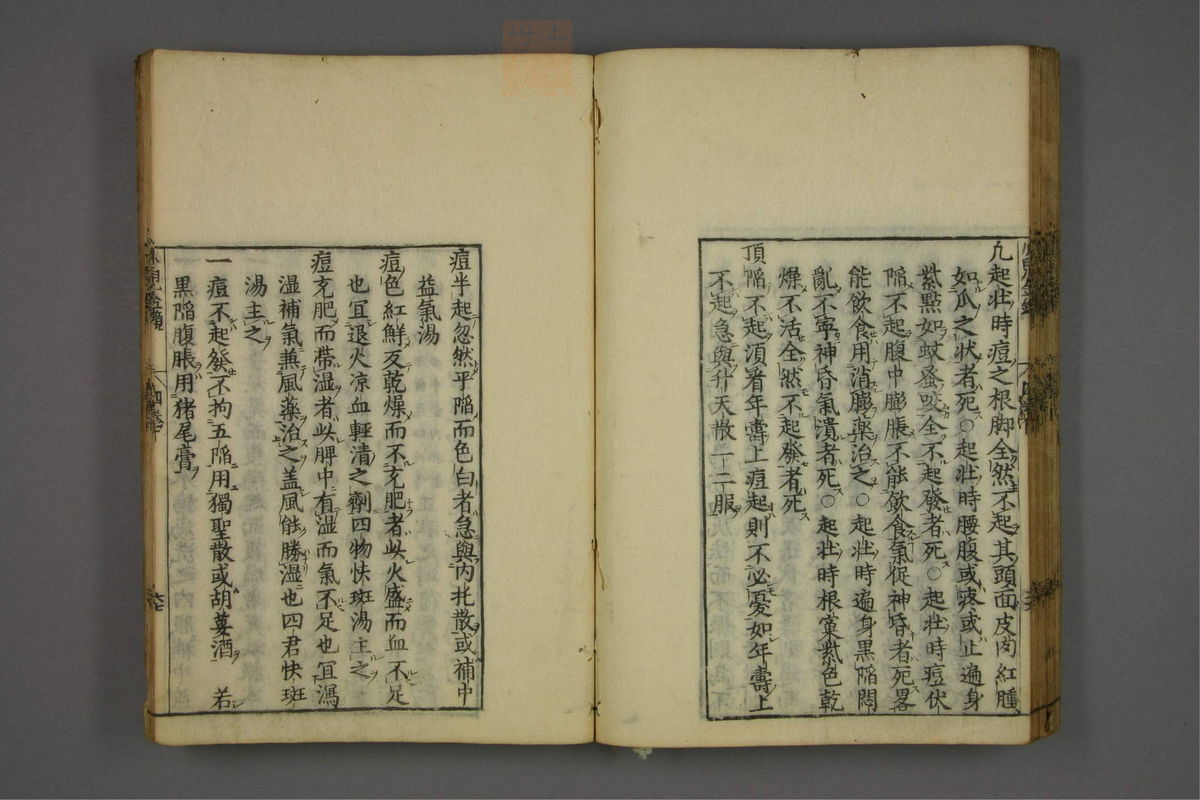 凢起壮時痘之根脚全然不起其頭面皮肉紅腫
如瓜之状者死○起壮時腰腹或疼或止遍身
紫點如蚊蚤咬全不起發者死○起壮時痘伏
陥不起腹中膨脹不能飲食氣促神昏者死畧
能飲食用消膨藥治之○起壮時遍身黒陥悶
亂不寧神昏氣潰者死○起壮時根窠紫色乾
燥不活全然不起發者死
頂陥不起須看年壽上痘起則不必憂如年壽上
不起急與升天散一二服
痘半起忽然平陥而色白者急與内托散或補中
益氣湯
痘色紅鮮及乾燥而不充肥者此火盛而血不足
也宜退火凉血輕清之劑四物快斑湯主之
痘充肥而帶湿者此脾中有湿而氣不足也宜瀉
湿補氣兼風藥治之盖風能勝湿也四君快斑
湯主之
一 痘不起發不拘五陥用獨聖散或胡荽酒 若
黒陥腹脹用猪尾膏